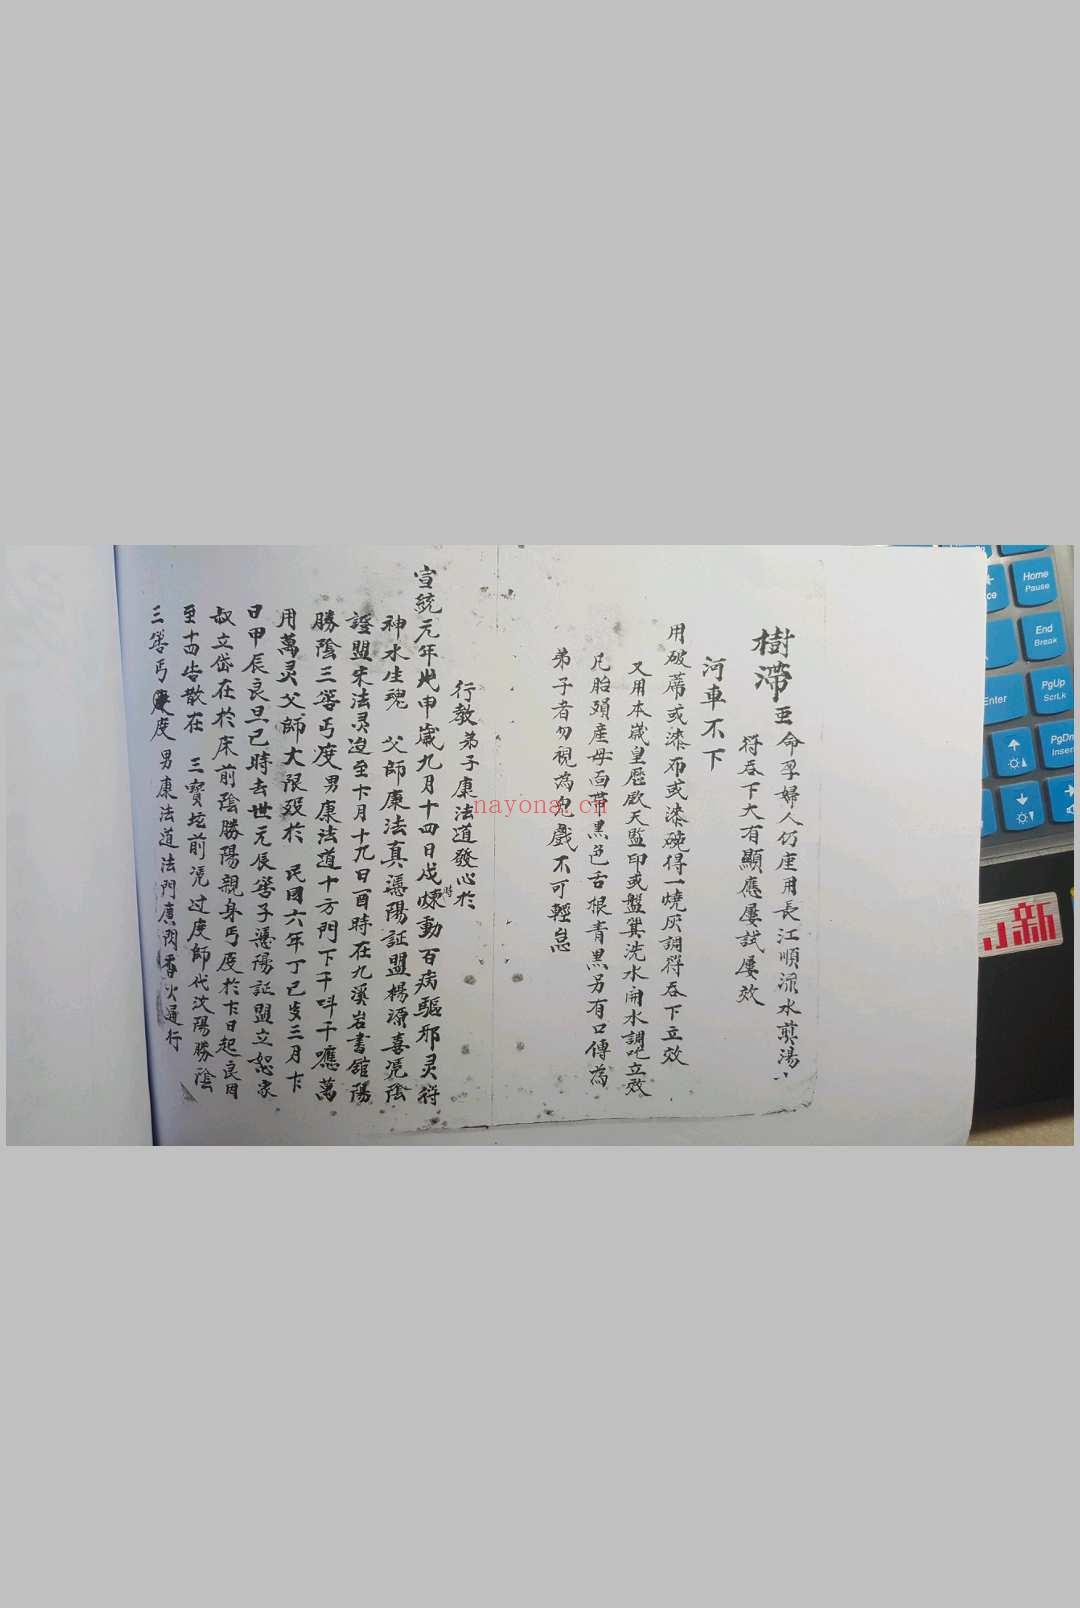 樹滯
亜命孕婦人仍座用長江順源水煎湯
符吞下大有顯應屢試屢效
河車不下
用破蓆或漆布或漆碗得一燒灰調符吞下立效
又用本歲皇歷欽天監印或盤箕洗水開水調吃立效
凡胎頭產母面帶黑色舌根青黑另有口傳為
弟子者勿視為兒戲不可輕怠
行教弟子康法道發心於
宣統元年申歲九月十四日戌時煉動百病驅邪灵符
神水生魂 父師康法真憑陽証盟楊源喜憑陰
證盟宋法灵没至十月十九日酉時在九溪岩書舘陽
勝陰三筶丐度男康法道十方門下千呌千應萬
用萬灵父師大限殁於 民囯六年丁巳歲三月
日甲辰良旦己時去世元辰筶子憑陽証盟立恕家
叔立岱在於床前陰勝陽親身丐度於日起良因
至十四告散在 三寶坛前憑过度師代汶陽勝陰
三筶丐度男康法道法門廣闊香火通行
nayona.cn
Home
Pause
End
Break
PgUp
ScrLk
Enter
PgDn
Inser
新